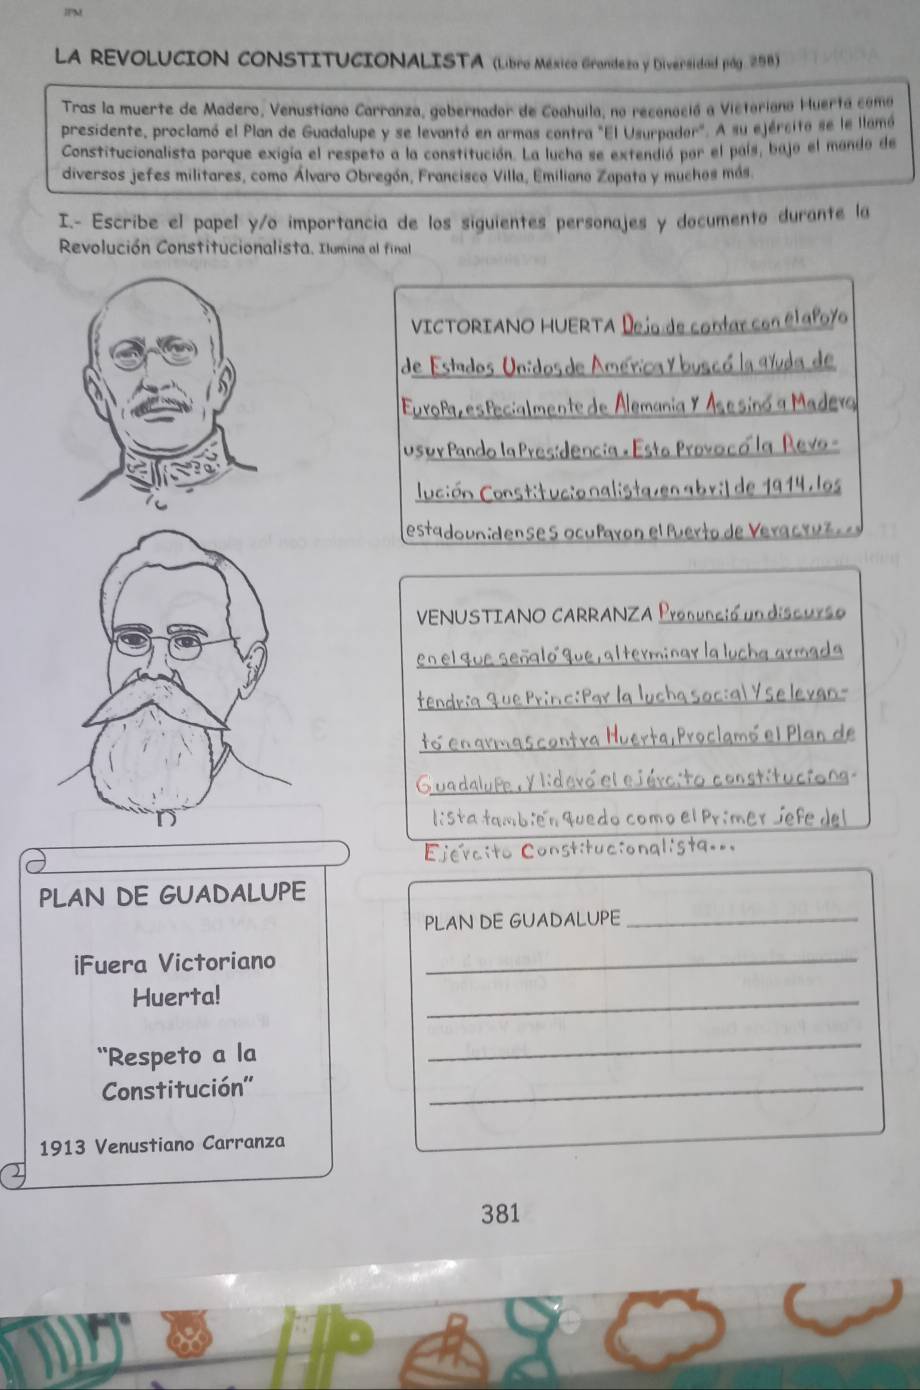 JPM
LA REVOLUCION CONSTITUCIONALISTA (Libro México Grandeza y Diversidad pág. 258)
Tras la muerte de Madero, Venustiano Carranza, gobernador de Coahuila, no reconoció a Victoriano Huerta como
presidente, proclamó el Plan de Guadalupe y se levantó en armas contra "El Usurpador". A su ejército se le llamó
Constitucionalista porque exigía el respeto a la constitución. La lucha se extendió por el país, bajo el mando de
diversos jefes militares, como Álvaro Obregón, Francisco Villa, Emiliano Zapata y muchos más.
I.- Escribe el papel y/o importancia de los siguientes personajes y documento durante la
Revolución Constitucionalista. Ilumina al final
VICTORIANO HUERTA Dejo de contar con el apoyo
de Estados Unidos de América y buscó la ayuda de
Europa, especialmente de Alemania y Asesinó a Madero
usurpando la Presidencia. Esto Provocó la Revo-
lución Constitucionalista, en abril de 1914, los
estadounidenses ocuparon el Puerto de Veracruz...
VENUSTIANO CARRANZA Pronunció un discurso
en el que señalo que, al terminar la lucha armada
tendría que Principar la lucha social y se levan-
tó en armas contra Huerta, Proclamó el Plan de
Guadalupe, y lideró el ejército constituciona-
lista también quedo como el Primer jefe del
Ejército Constitucionalista...
PLAN DE GUADALUPE
¡Fuera Victoriano
Huerta!
"Respeto a la
Constitución"
1913 Venustiano Carranza
PLAN DE GUADALUPE
381